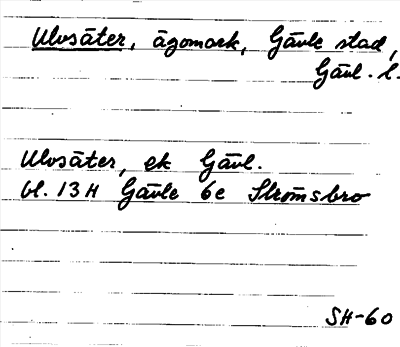 Ulvsäter, ägomark, Gävle stad,
Gävl. l.
Ulvsäter, ek Gävl.
bl. 13H Gävle 6c Strömsbro
SH-60